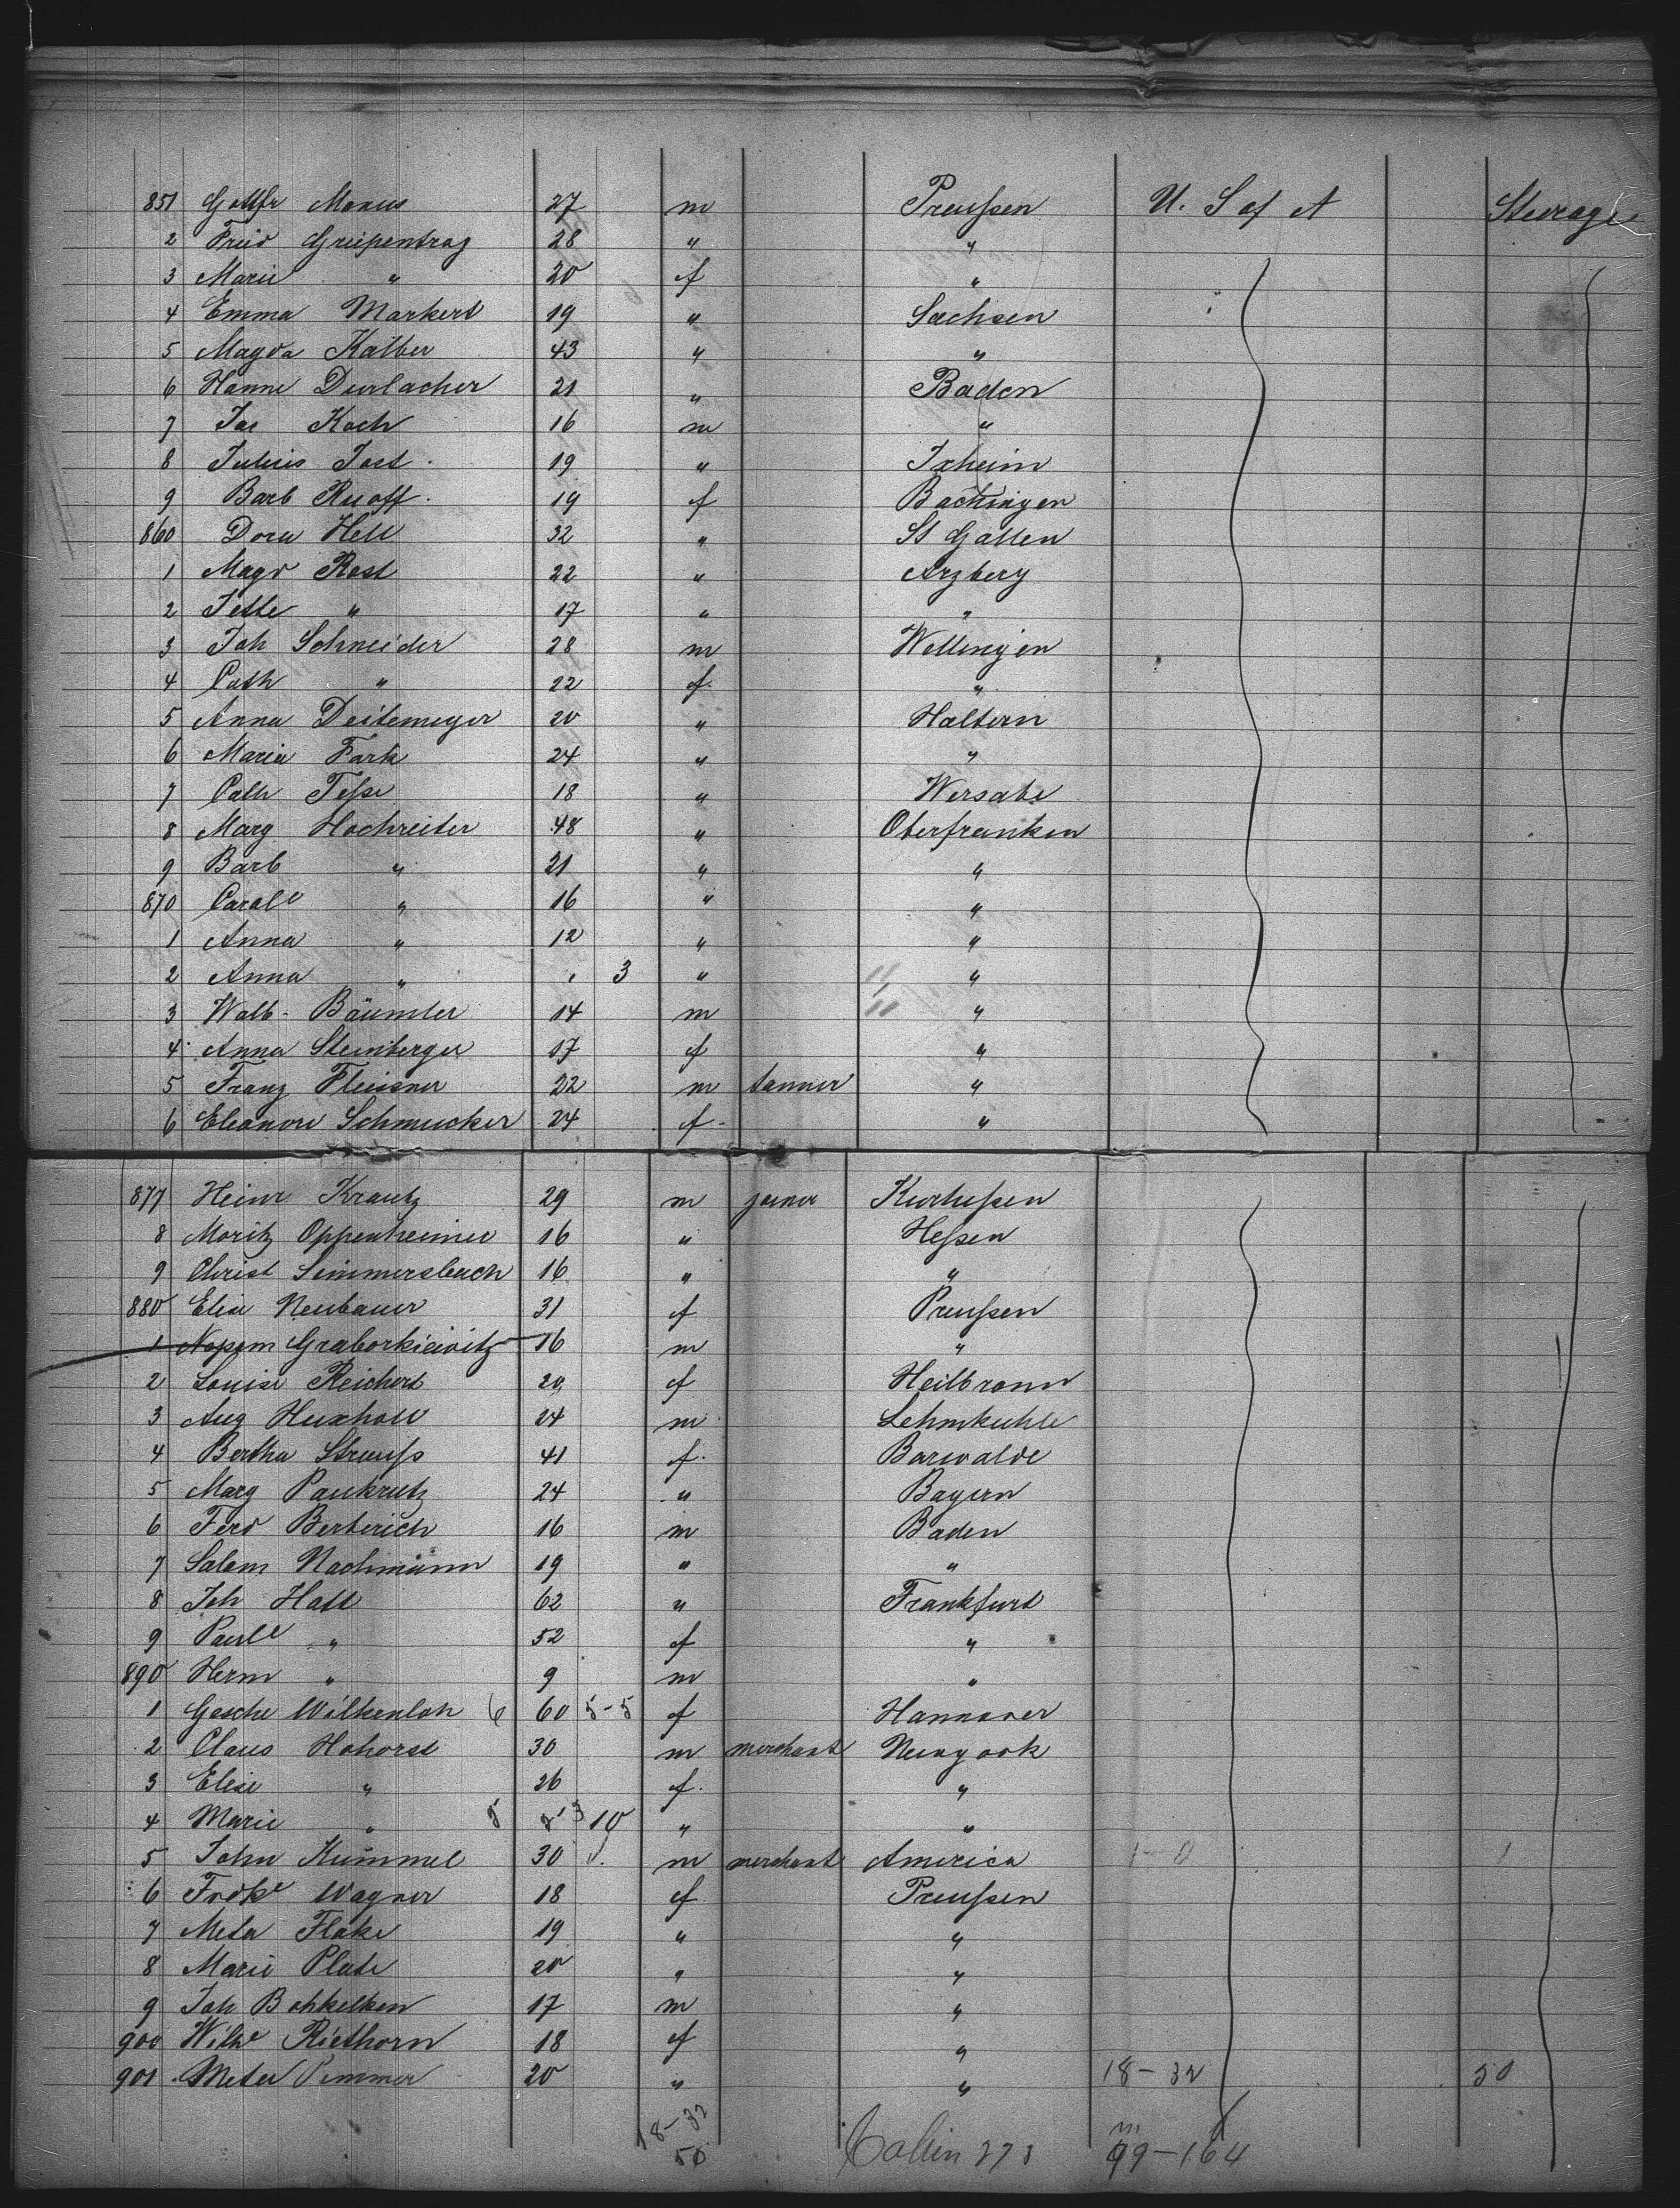 851 Gottfr Monus 27 m Preußen U. S of A Steerage
2 Fried Griepentrog 28 " "
3 Marie " 20 f "
4 Emma Markert 19 " Sachsen
5 Magda Kälber 43 " "
6 Hanne Durlacher 21 " Baden
7 Jos Koch 16 m "
8 Julius Jost 19 " Ixheim
9 Barb Ruoff 19 f Bachingen
860 Dora Hell 32 " St Gallen
1 Magd Rost 22 " Arzberg
2 Jette " 17 " "
3 Joh Schneider 28 m Wellingen
4 Cath " 22 f "
5 Anna Deitemeyer 20 " Haltern
6 Maria Fark 24 " "
7 Cath Teße 18 " Wersabe
8 Marg Hochreiter 48 " Oberfranken
9 Barb " 21 " "
870 Carole " 16 " "
1 Anna " 12 " "
2 Anna " 3 " "
3 Walb Bäumler 14 m "
4 Anna Steinberger 17 f "
5 Franz Fleissner 22 m tanner "
6 Eleanore Schmucker 24 f "
877 Heinr Krautz 29 m joiner Kurhessen
8 Moritz Oppenheimer 16 " Heßen
9 Christ Simmersbach 16 " "
880 Elise Neubauer 31 f Preußen
1 Graborkiewitz 16 m "
2 Louise Reichert 20 f Heilbronn
3 Aug Huxholl 24 m Lehmkuhle
4 Bertha Strauß 41 f Barwalde
5 Marg Pankrutz 24 " Bayern
6 Ferd Berberich 16 m Baden
7 Salom Nachmann 19 " "
8 Joh Hatt 62 " Frankfurt
9 Paule " 52 f "
890 Herm " 9 m "
1 Gesche Wilkenloh 6 60 5-5 f Hannover
2 Claus Hohorst 30 m merchant Newyork
3 Elise " 26 f "
4 Marie " 5 3 10 " "
5 John Kümmel 30 m merchant America 1-0 1
6 Fredke Wagner 18 f Preußen
7 Meta Flake 19 " "
8 Marie Plate 20 " "
9 Joh Bohkelken 17 m "
900 Wilhe Riethorn 18 f "
901 Meta Pimmer 20 " " 18-32 50
18-32
50 273 m
99-164